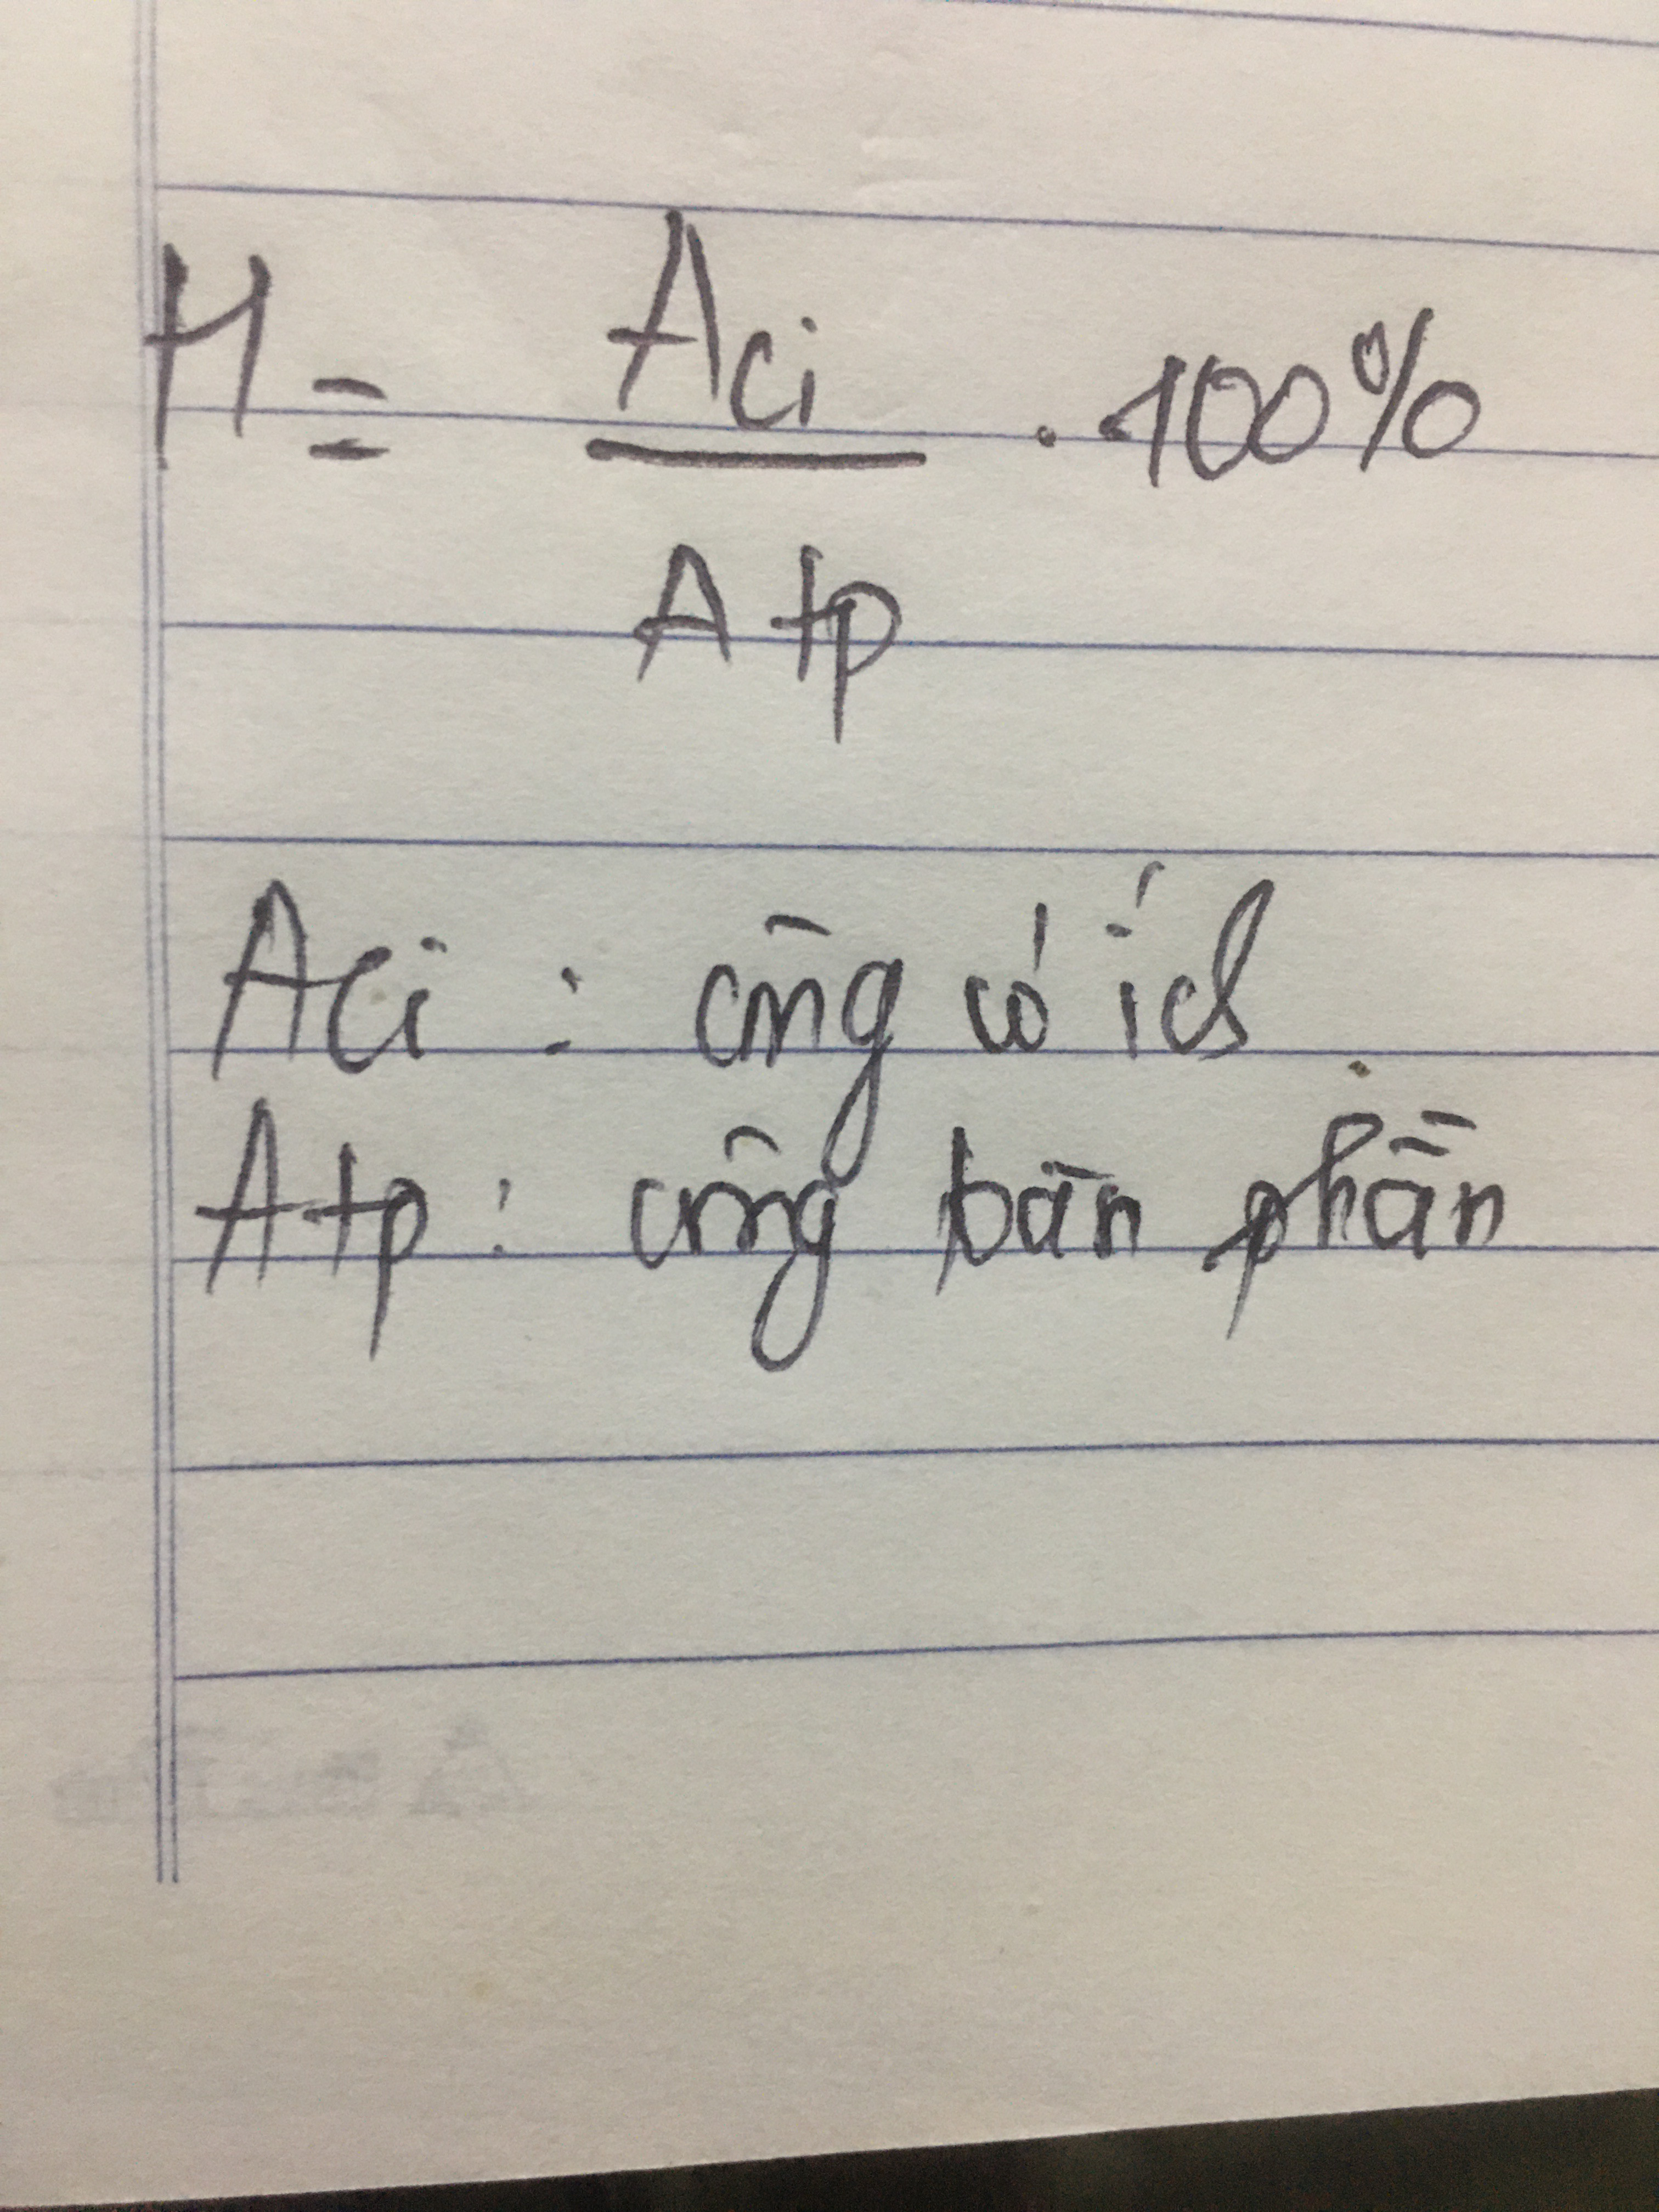 H = Aci / Atp . 100%
Aci : công có ích.
Atp : công toàn phần